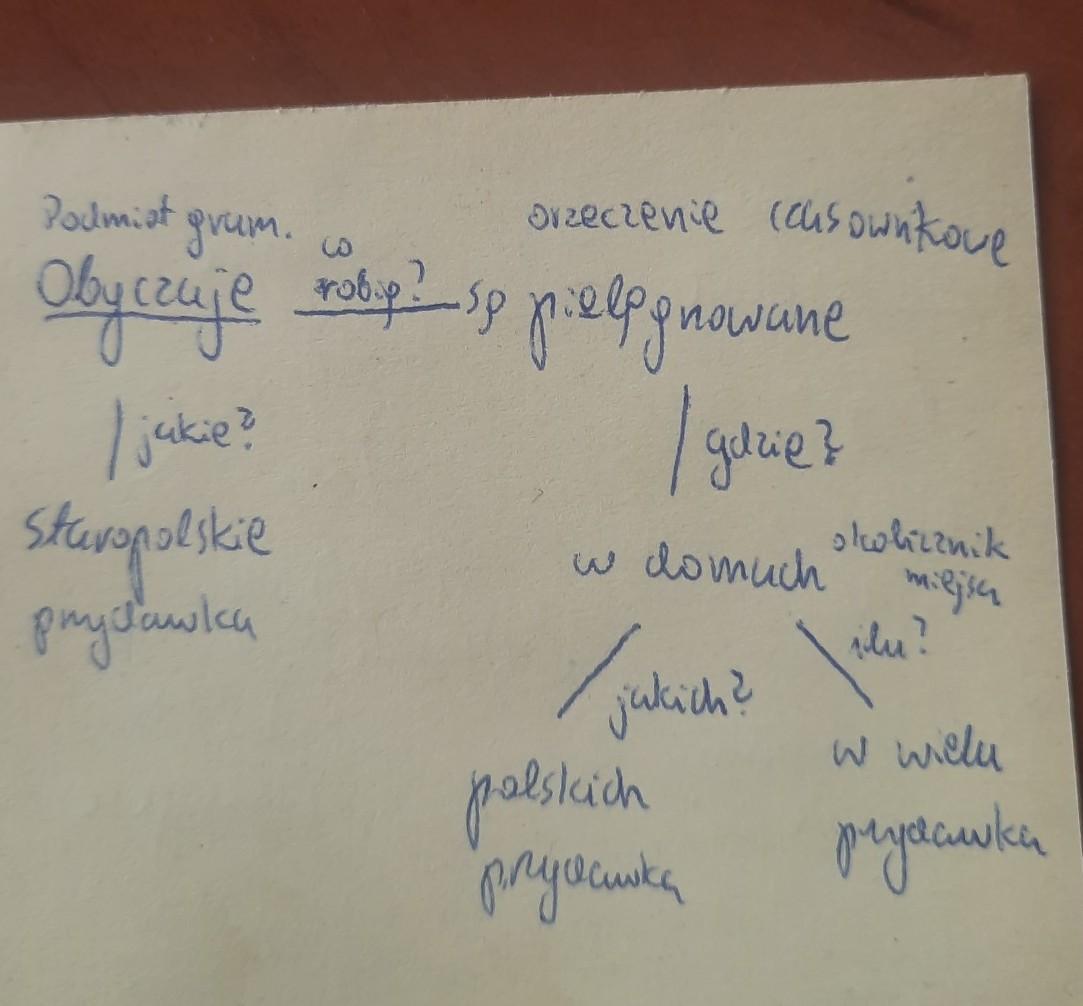 Podmiot gram.
orzeczenie czasownikowe
Obyczaje co robią? są pielęgnowane
jakie?
gdzie?
staropolskie
przydawka
w domach okolicznik miejsca
jakich?
ilu?
polskich
przydawka
w wielu
przydawka